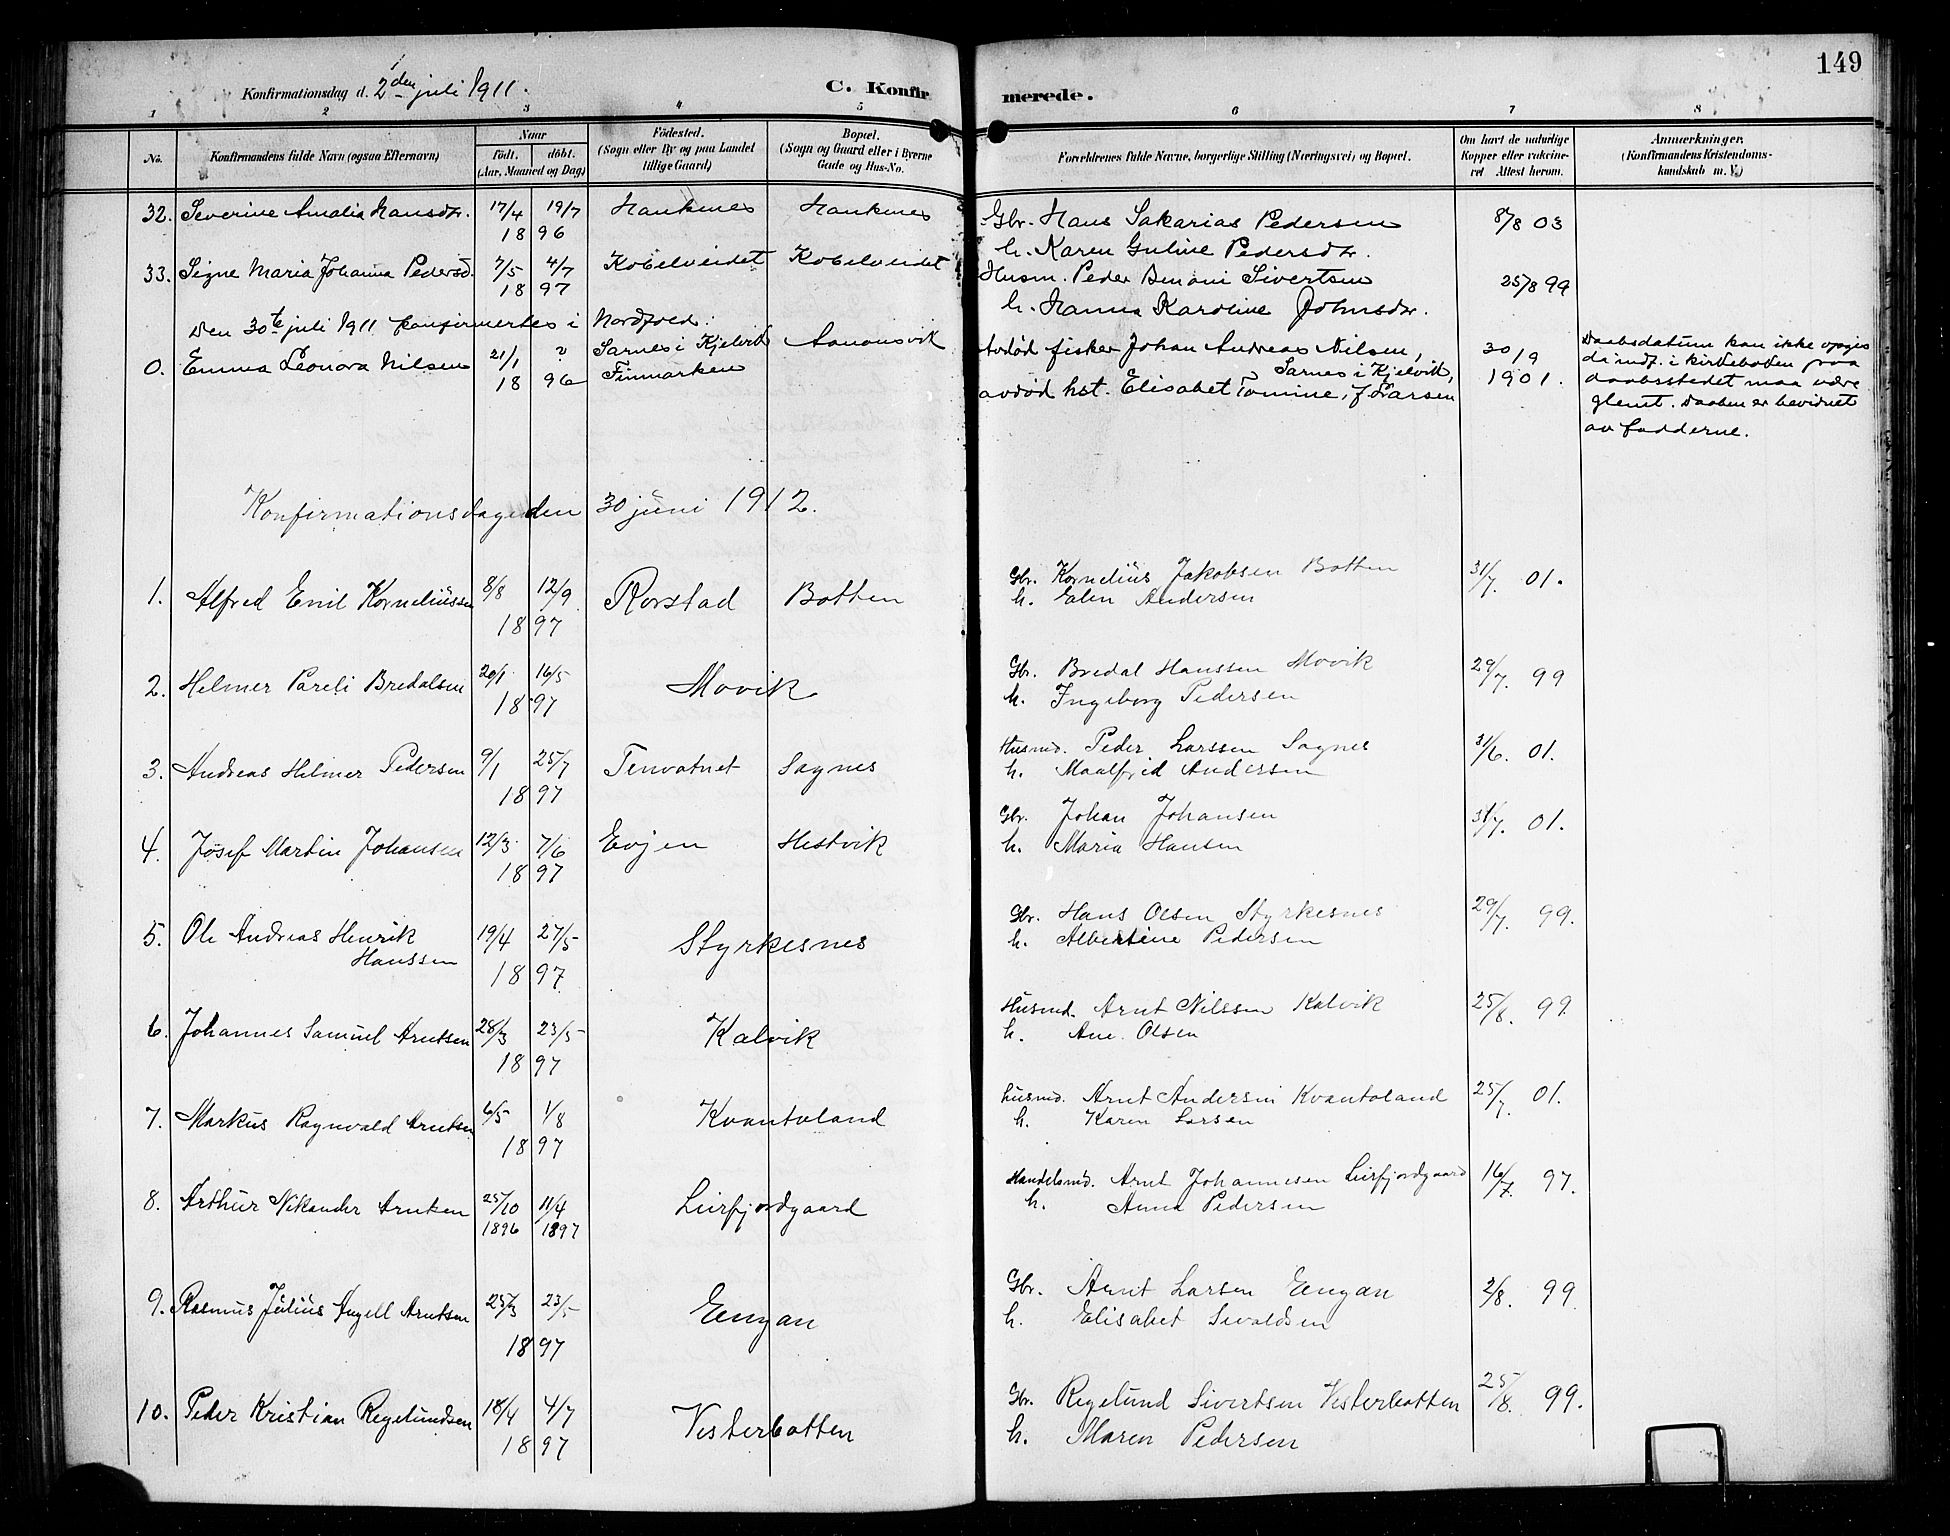 149
Konfirmationsdag d. 2den juli 1911. C. Konfirmerede.
1 2 3 4 5 6 7 8
No. Konfirmandens fulde Navn (ogsaa Efternavn) Naar födt. döbt. (Aar, Maaned og Dag) Födested. (Sogn eller By og paa Landet tillige Gaard) Bopæl. (Sogn og Gaard eller i Byerne Gade og Hus-No. Forældrenes fulde Navne, borgerlige Stilling (Næringsvei) og Bopæl. Om havt de naturlige Kopper eller vakcineret Attest herom. Anmærkninger, (Konfirmandens Kristendomskundskab m. V.)
32. Severine Amalia Hansdtr. 17/4 19/7 Haukenes Haukenes Gbr. Hans Sakarias Pedersen 8/8 03
18 96 h. Karen Guline Pedersdtr.
33. Signe Maria Johanna Pedersd. 7/5 4/7 Kobelveidet Kobelveidet Husm. Peder Benoni Sivertsen 25/8 99
18 97 h. Hanna Karoline Johnsdtr.
Den 30te juli 1911 konfirmertes i Nordfold:
0. Emma Leonora Nilsen 21/1 ? Sarnes i Kjelvik Aanonsvik Avdød fisker Johan Andreas Nilsen, 30/9 Daabsdatum kan ikke opgis
18 96 Finmarken Sarnes i Kjelvik, 1901. da indf. i kirkeboken paa
avdød hst. Elisabet Tomine, f Larsen daabsstedet maa være
glemt. Daaben er bevidnet
av fadderne.
Konfirmationsdagen den 30 juni 1912.
1. Alfred Emil Korneliussen 8/8 12/9 Rorstad Botten Gbr. Kornelius Jakobsen Botten 31/7. 01.
18 97 h. Elen Andersen
2. Helmer Pareli Bredalsen 20/1 16/5 Movik Gbr. Bredal Hanssen Movik 29/7. 99
18 97 h. Ingeborg Pedersen
3. Andreas Helmer Pedersen 9/1 25/7 Tenvatnet Sagnes Husmd. Peder Larssen Sagnes 31/6. 01.
18 97 h. Maalfrid Andersen
4. Josef Martin Johansen 12/3 7/6 Evjen Hestvik Gbr. Johan Johansen 31/7. 01.
18 97 h. Maria Hansen
5. Ole Andreas Henrik 19/4 27/5 Styrkesnes Gbr. Hans Olsen Styrkesnes 29/7. 99.
Hanssen 18 97 h. Albertine Pedersen
6. Johannes Samuel Arntsen 28/3 23/5 Kalvik Husmd. Arnt Nilssen Kalvik 25/8. 99
18 97 h. Ane Olsen
7. Markus Ragnvald Arntsen 6/5 1/8 Kvantoland Husmd. Arnt Andersen Kvantoland 25/7. 01.
18 97 h. Karen Larsen
8. Arthur Nikander Arntsen 25/10 11/4 Leirfjordgaard Handelsmd. Arnt Johannesen Leirfjordgaard 16/7. 97.
1896 1897 h. Anna Pedersen
9. Rasmus Julius Angell Arntsen 25/3 23/5 Eengan Gbr. Arnt Larsen Eengan 2/8. 99.
18 97 h. Elisabet Sivaldsen
10. Peder Kristian Regelundsen 18/4 4/7 Vesterbotten Gbr. Regelund Sivertsen Vesterbotten 25/8. 99.
18 97 h. Maren Pedersen